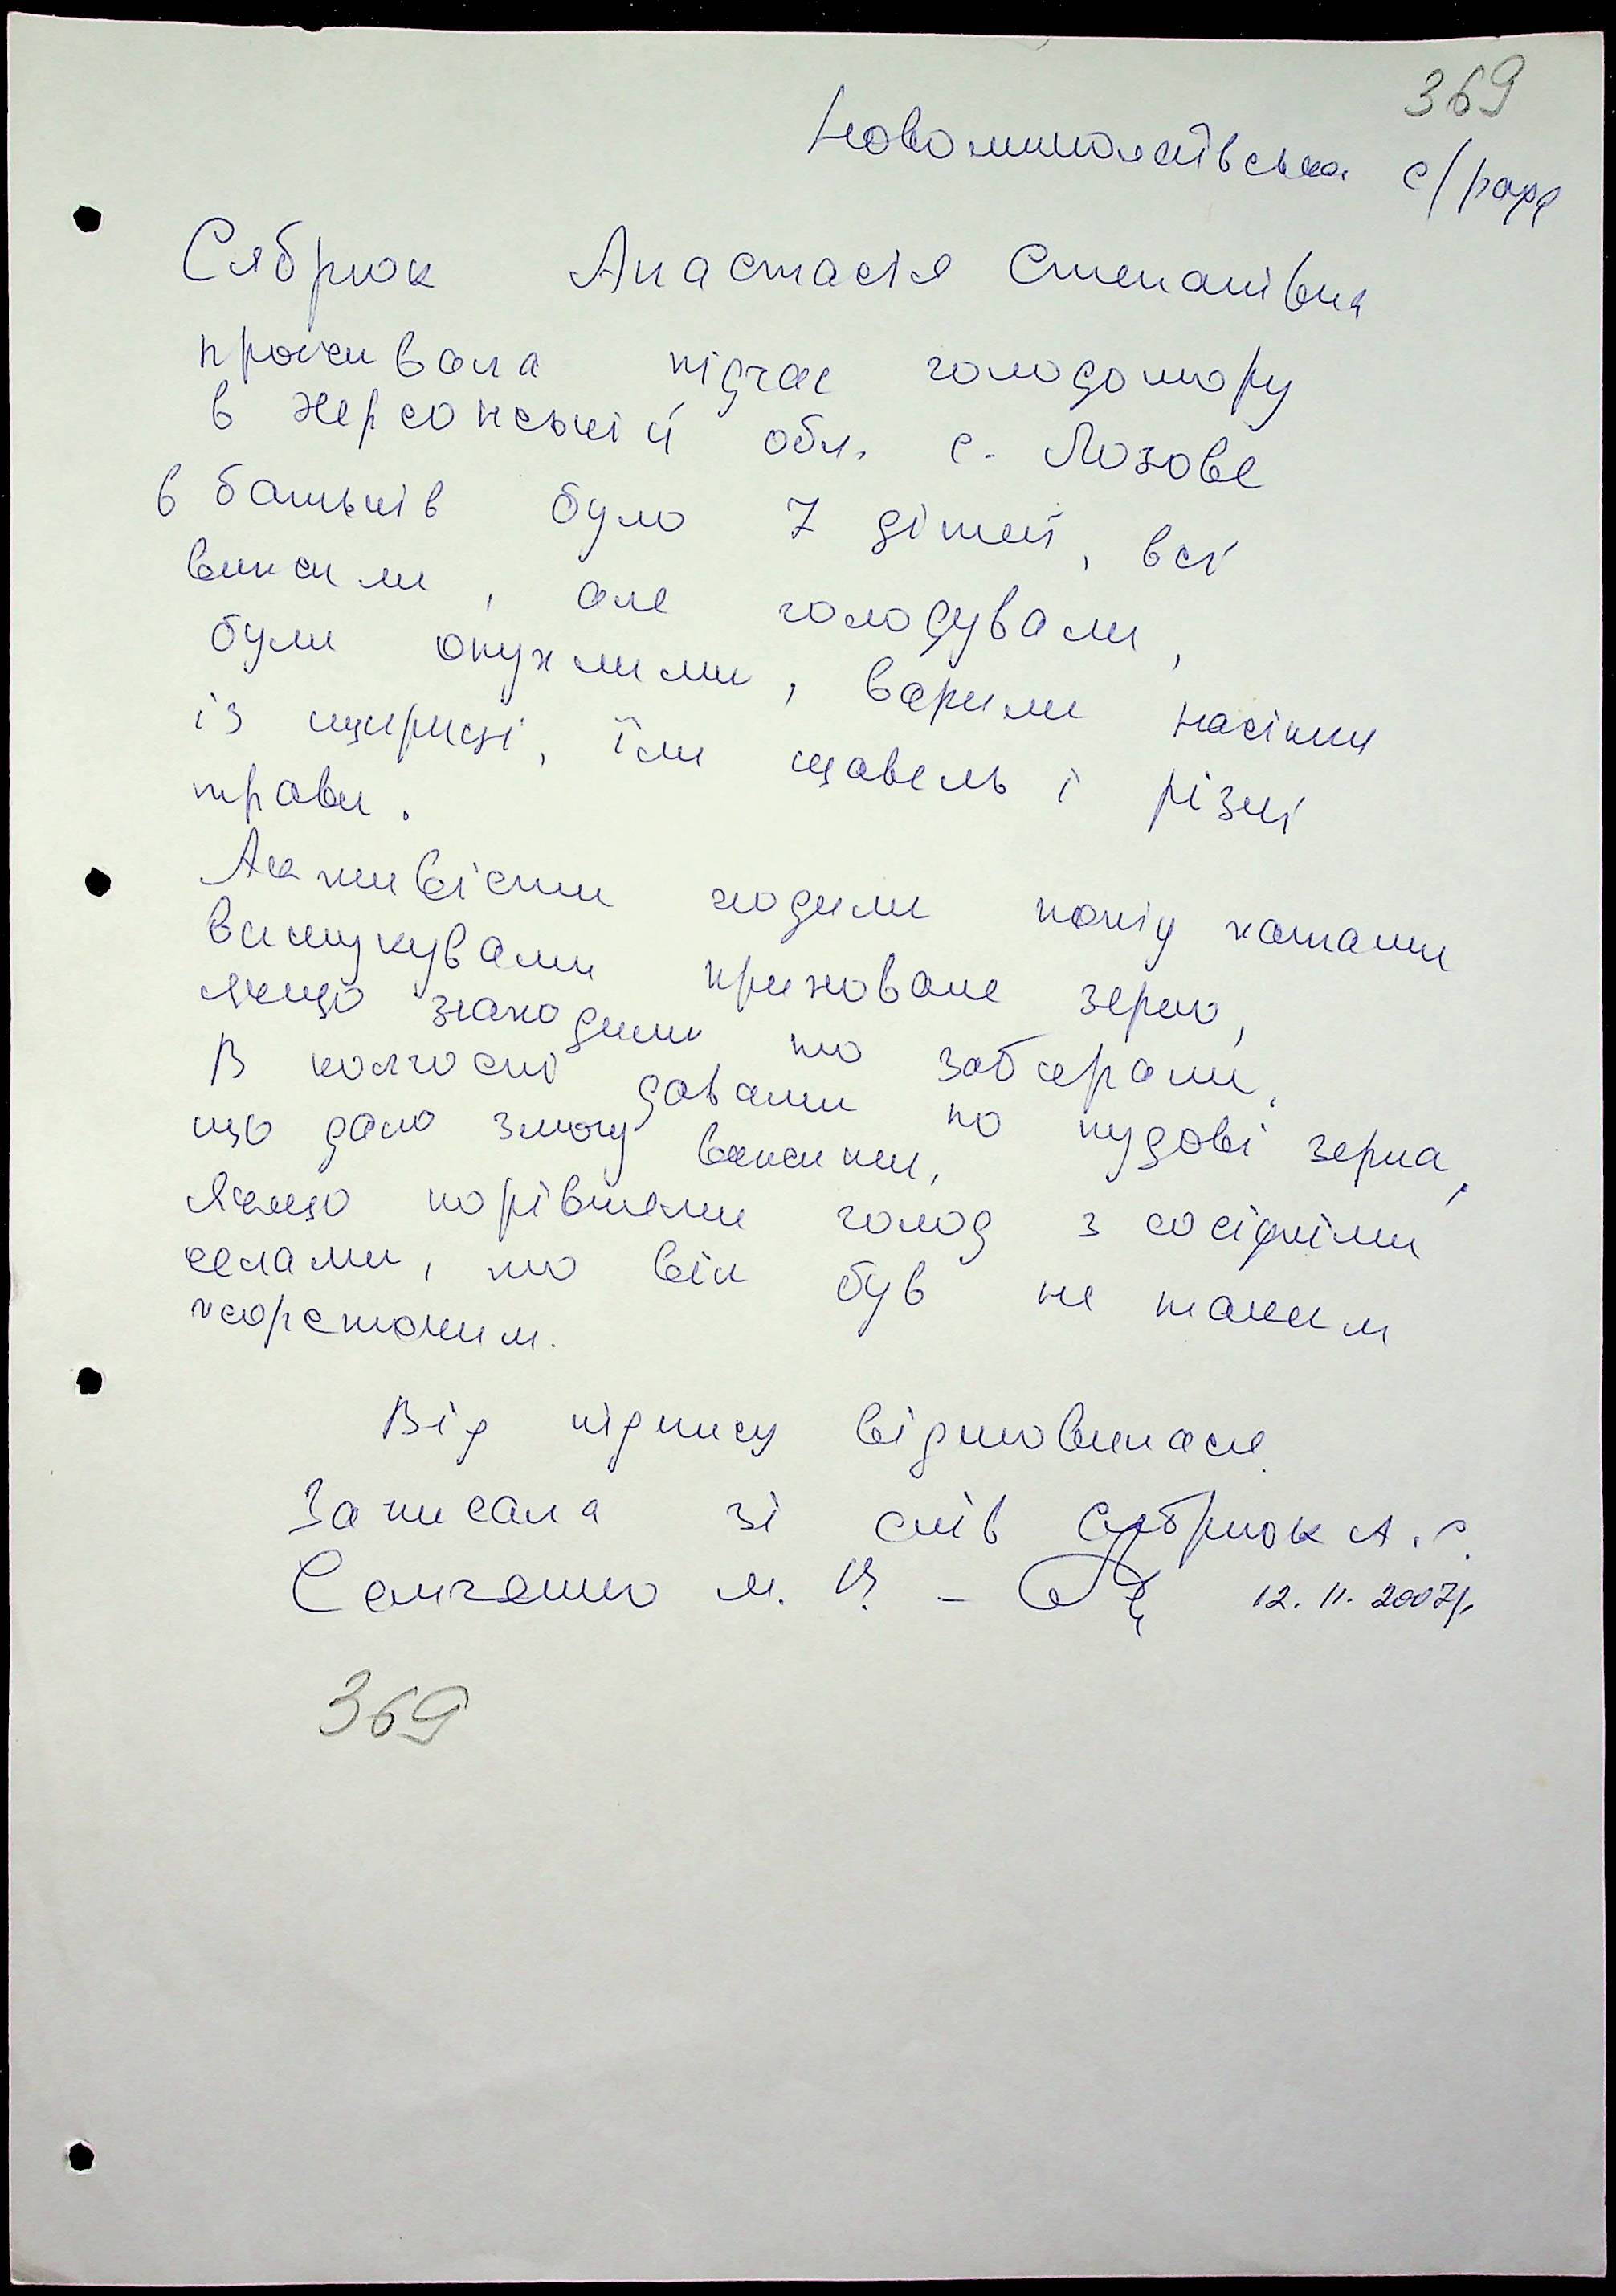 369
Новомиколаївська с/рада
Сябрюк Анастасія Степанівна
проживала підчас голодомору
в Херсонській обл. с. Лозове
в батьків було 7 дітей, всі
вижили, але голодували,
були опухлими, варили насіння
із щириці, їли щавель і різні
трави.
Активісти ходили попід хатами
вишукували приховане зерно,
якщо знаходили то забирали.
В колгоспі давали по пудові зерна,
що дало змогу вижити.
Якщо порівняти голод з сусідніми
селами, то він був не таким
жорстоким.
Від підпису відмовилася.
Записала зі слів Сябрюк А. С.
М. В. - 12. 11. 2007р.
369